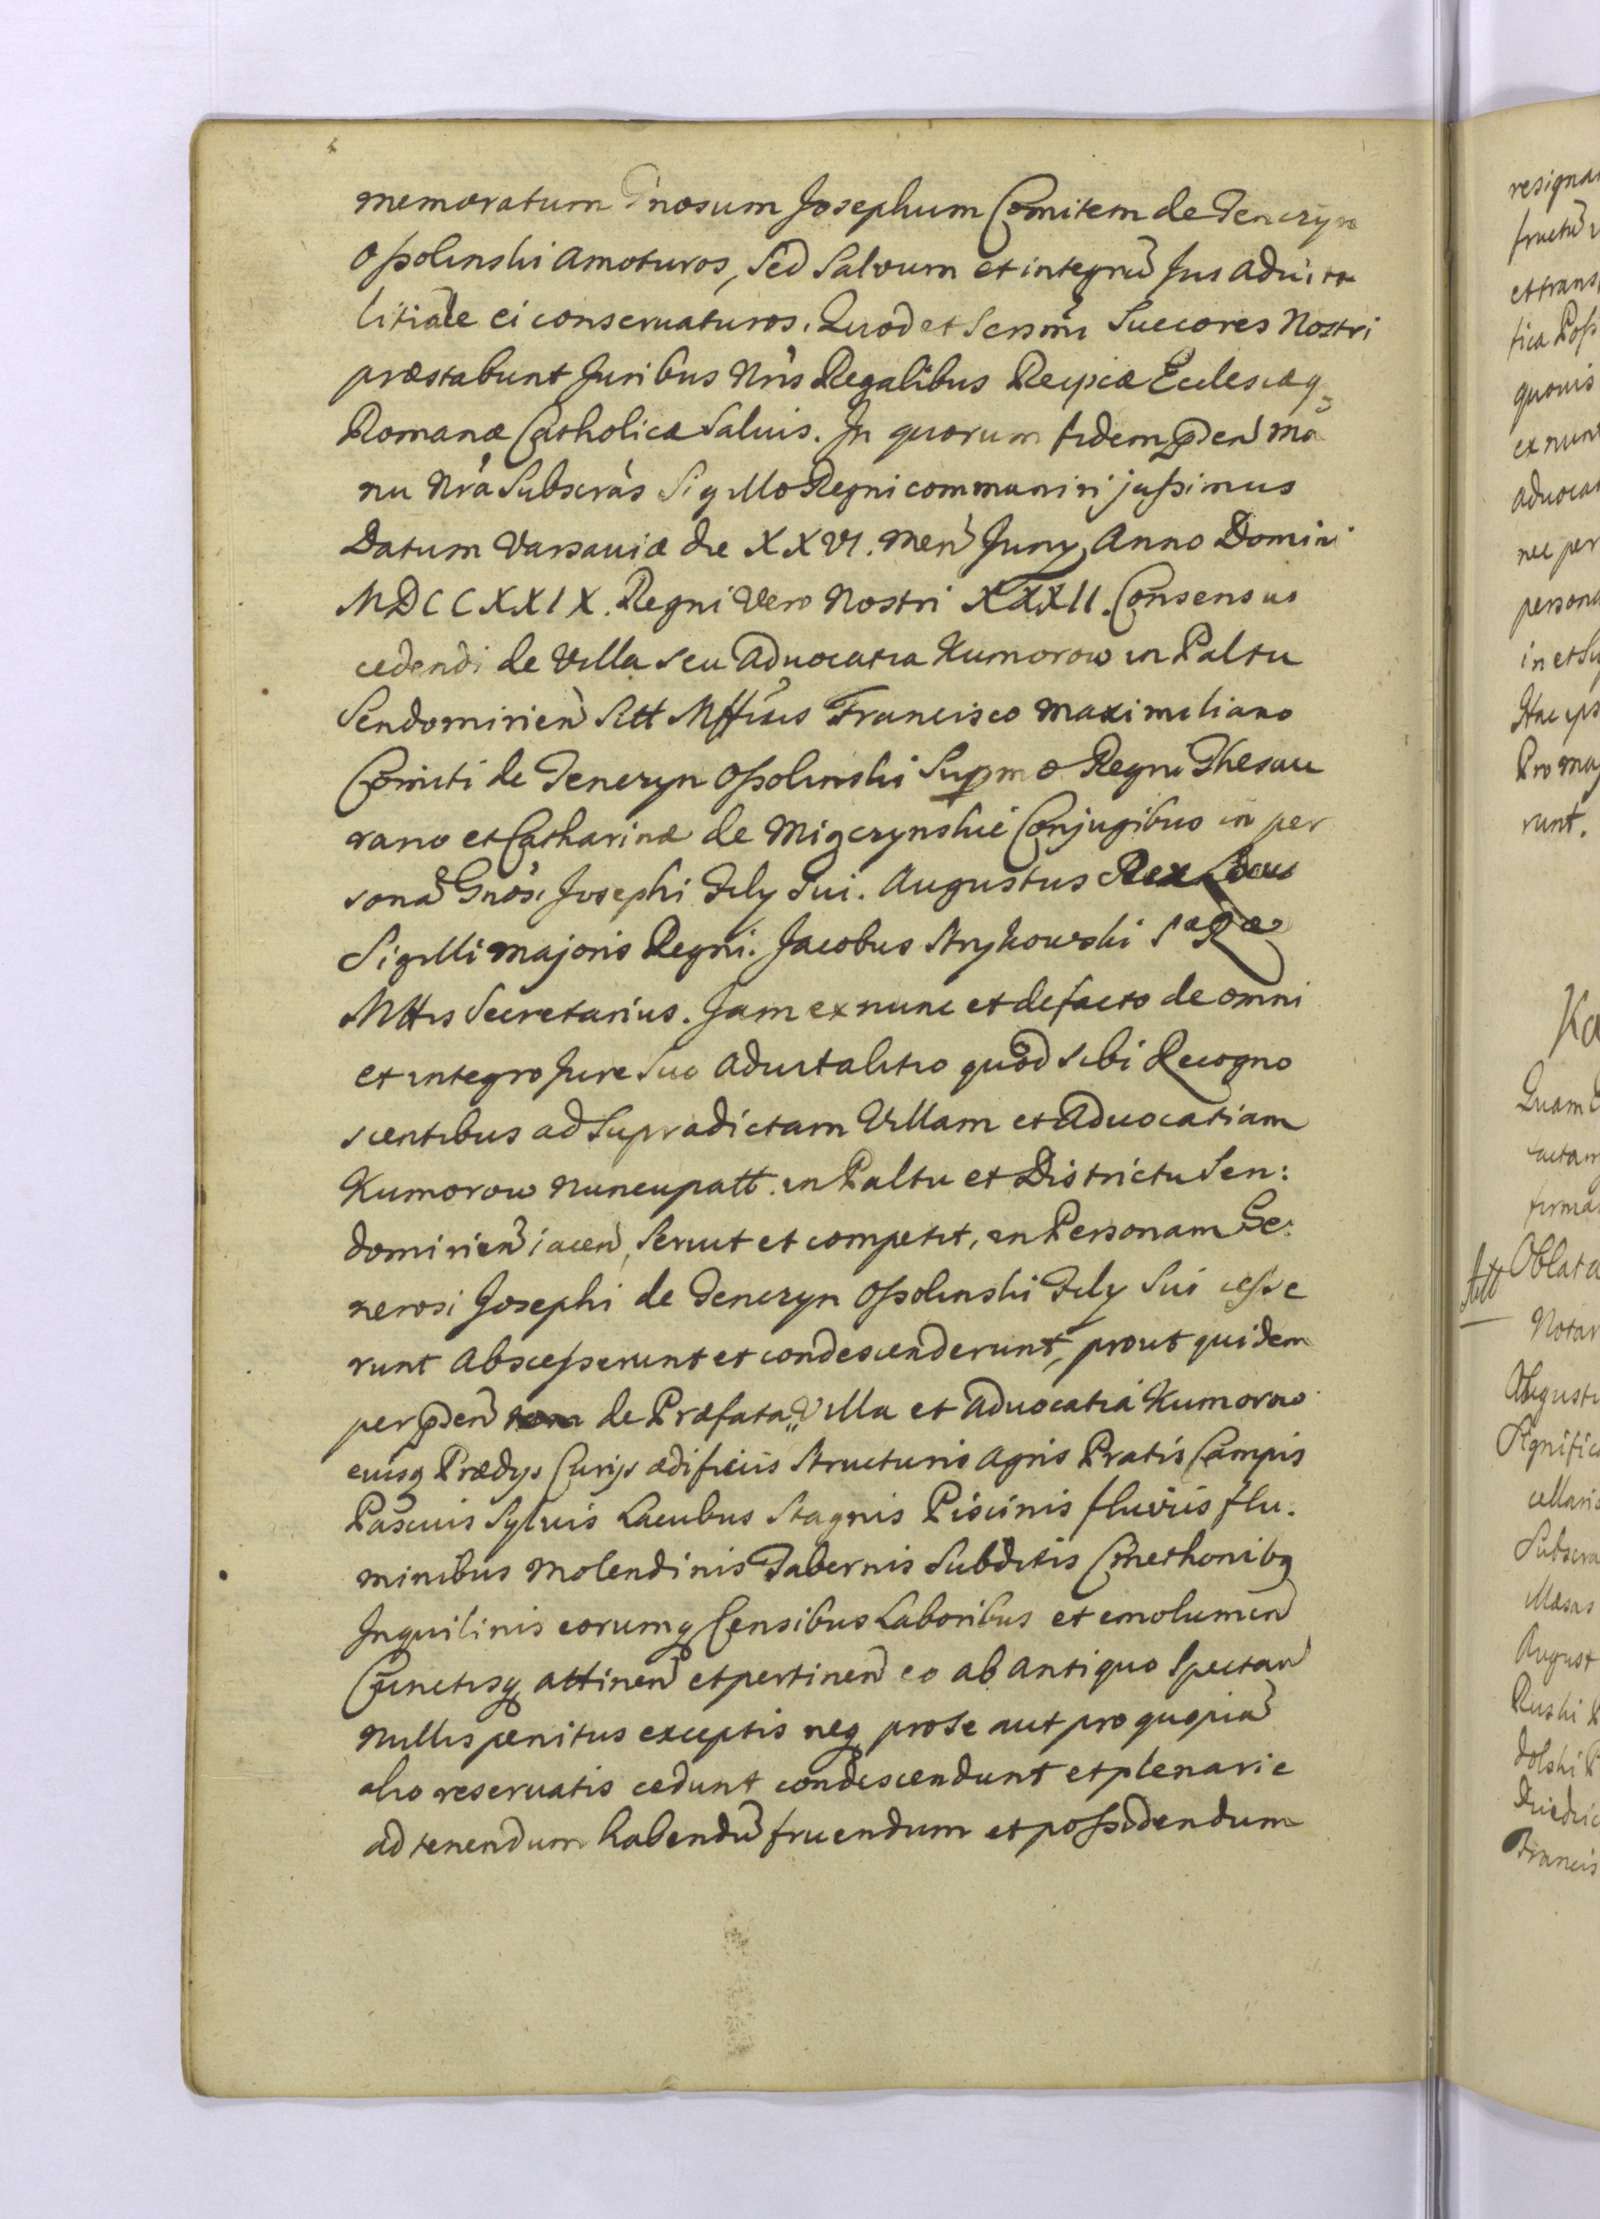 memoratum Gnosum Josephum Comitem de Tenczyn
Ossolinski amoturos, sed salvum et integrũ Jus aduita
litiale ei conseruaturos. Quod et Sersmi Succores Nostri
præstabunt Juribus Nris Regalibus Reipcæ Eclesiæq
Romanæ Catholicæ Saluis. In quorum fidem pden ma
nu Nra Subscras Sigillo Regni communiri jussimus
Datum Varsauiæ die XXVI. Men Juny Anno Domini
MDCCXXIX. Regni Vero Nostri XXXII. Consensus
cedendi de Villa seu Aduocatia Kumorow in Paltu
Sendomirien Sitt Mffisis Francisco Maximiliano
Comiti de Tenczyn Ossolinski Supmo Regni Thesau
rario et Catharinæ de Miączynskie Conjugibus in per
sonã Gnosi Josephi Fily Sui. Augustus Rex Locus
Sigilli majoris Regni. Jacobus Strykowski SæRæ
Mttis Secretarius. Jam ex nunc et de facto de omni
et integro Jure Suo aduitalitio quod sibi Recogno
scentibus ad Supradictam Villam et Aduocatiam
Kumorow nuncupatt. in Paltu et Districtu Sen:
domirien iacen, seruit et competit, in Personam Ge:
nerosi Josephi de Tenczyn Ossolinski Fily Sui cesse
runt abscesserunt et condescenderunt, prout quidem
per pden de Præfata Villa et Aduocatia Kumorow
eiusq Prædys Curijs ædificiis structuris agris Pratis Campis
Pascuis Syluis Lacubus Stagnis Piscinis fluviis flu:
minibus Molendinis Tabernis Subditis Cmethonibq
Inquilinis eorumq Censibus Laboribus et emolumen
Cunctisq attinen et pertinen eo ab antiquo spectan
nullis pænitus exceptis neq pro se aut pro quopiã
alio reservatis cedunt condescendunt et plenarie
ad tenendum habendũ fruendum et possidendum